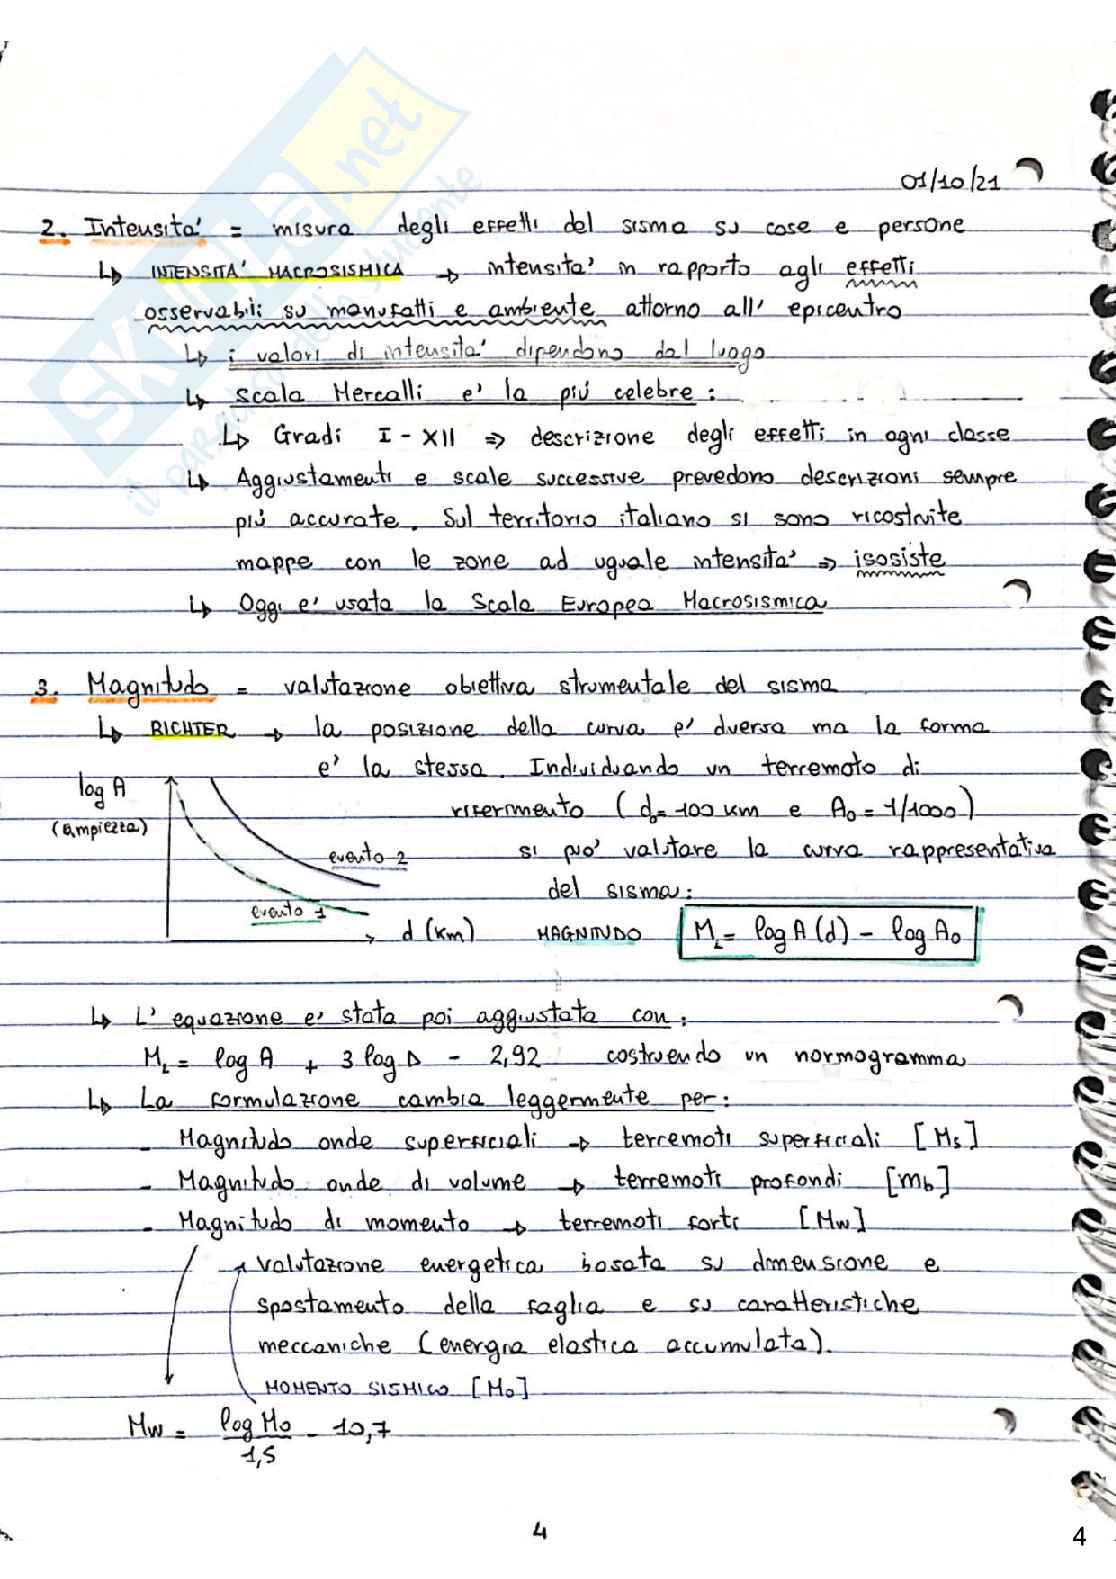 SKUOLA.net
01/10/21
2. Intensita' = misura degli effetti del sisma su cose e persone
↳ INTENSITA' MACROSISMICA → intensita' in rapporto agli effetti
osservabili su manufatti e ambiente attorno all' epicentro
↳ i valori di intensita' dipendono dal luogo
↳ Scala Mercalli e' la più celebre :
↳ Gradi I - XII ⇒ descrizione degli effetti in ogni classe
↳ Aggiustamenti e scale successive prevedono descrizioni sempre
più accurate. Sul territorio italiano si sono ricostruite
mappe con le zone ad uguale intensita' ⇒ isosiste
↳ Oggi e' usata la Scala Europea Macrosismica
3. Magnitudo = valutazione obiettiva strumentale del sisma
↳ RICHTER → la posizione della curva e' diversa ma la forma
e' la stessa. Individuando un terremoto di
riferimento (d₀=100 km e A₀=1/1000)
si può' valutare la curva rappresentativa
del sisma:
log A
(ampiezza)
evento 2
evento 1
d (km)
MAGNITUDO M_L = log A (d) - log A₀
↳ L' equazione e' stata poi aggiustata con:
M_L = log A + 3 log D - 2,92 costruendo un normogramma
↳ La formulazione cambia leggermente per:
- Magnitudo onde superficiali → terremoti superficiali [Ms]
- Magnitudo onde di volume → terremoti profondi [mb]
- Magnitudo di momento → terremoti forti [Mw]
valutazione energetica basata su dimensione e
spostamento della faglia e su caratteristiche
meccaniche (energia elastica accumulata).
MOMENTO SISMICO [M₀]
Mw = log M₀ / 1,5 - 10,7
4
4